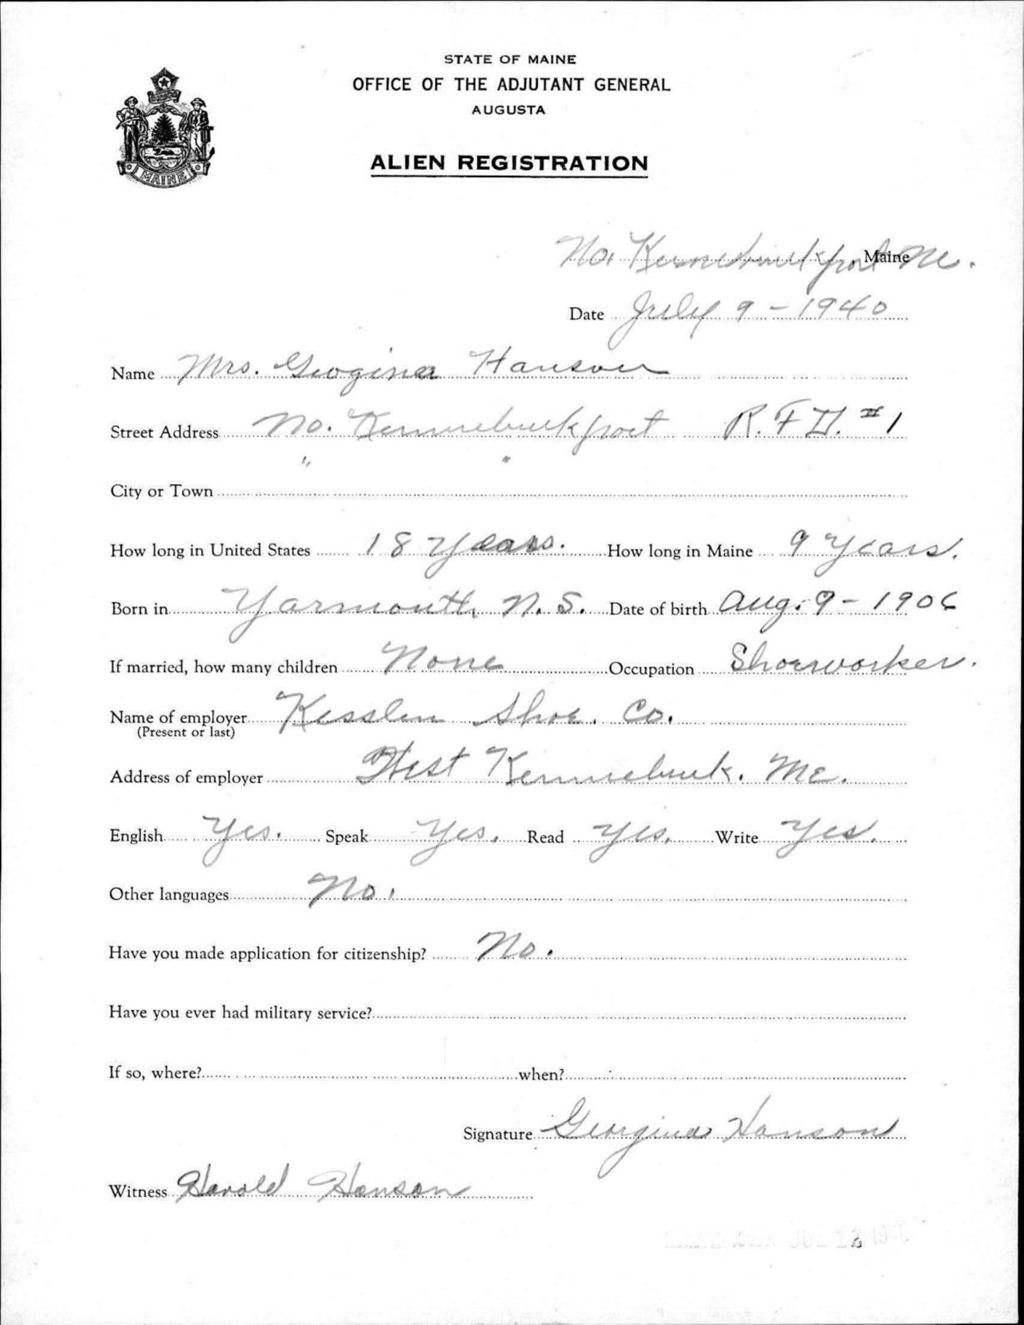 STATE OF MAINE
OFFICE OF THE ADJUTANT GENERAL
AUGUSTA
ALIEN REGISTRATION
MAINE
No. Kennebunkport, Maine Me.
Date July 9 - 1940
Name Mrs. Georgina Hanson
Street Address No. Kennebunkport R.F.D. #1
" "
City or Town
How long in United States 18 Years. How long in Maine 9 Years.
Born in Yarmouth, N.S. Date of birth Aug. 9 - 1906
If married, how many children None Occupation Shoeworker.
Name of employer Kesslen Shoe. Co.
(Present or last)
Address of employer West Kennebunk. Me.
English Yes. Speak Yes. Read Yes. Write Yes.
Other languages No.
Have you made application for citizenship? No.
Have you ever had military service?
If so, where? when?
Signature Georgina Hanson
Witness Harold Hanson
JUL 12 1940